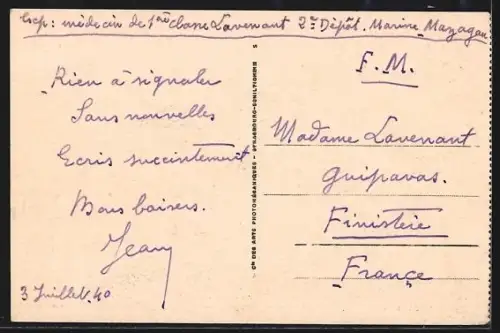 Exp: médecin de 1ère classe Lavenant 2e Dépôt. Marine Mazagan
Rien à signaler
Sans nouvelles
Ecris succintement
Bons baisers.
Jean
3 Juillet. 40
Cie DES ARTS PHOTOMÉCANIQUES - STRASBOURG-SCHILTIGHEIM
F.M.
Madame Lavenant
Guipavas.
Finistère
France